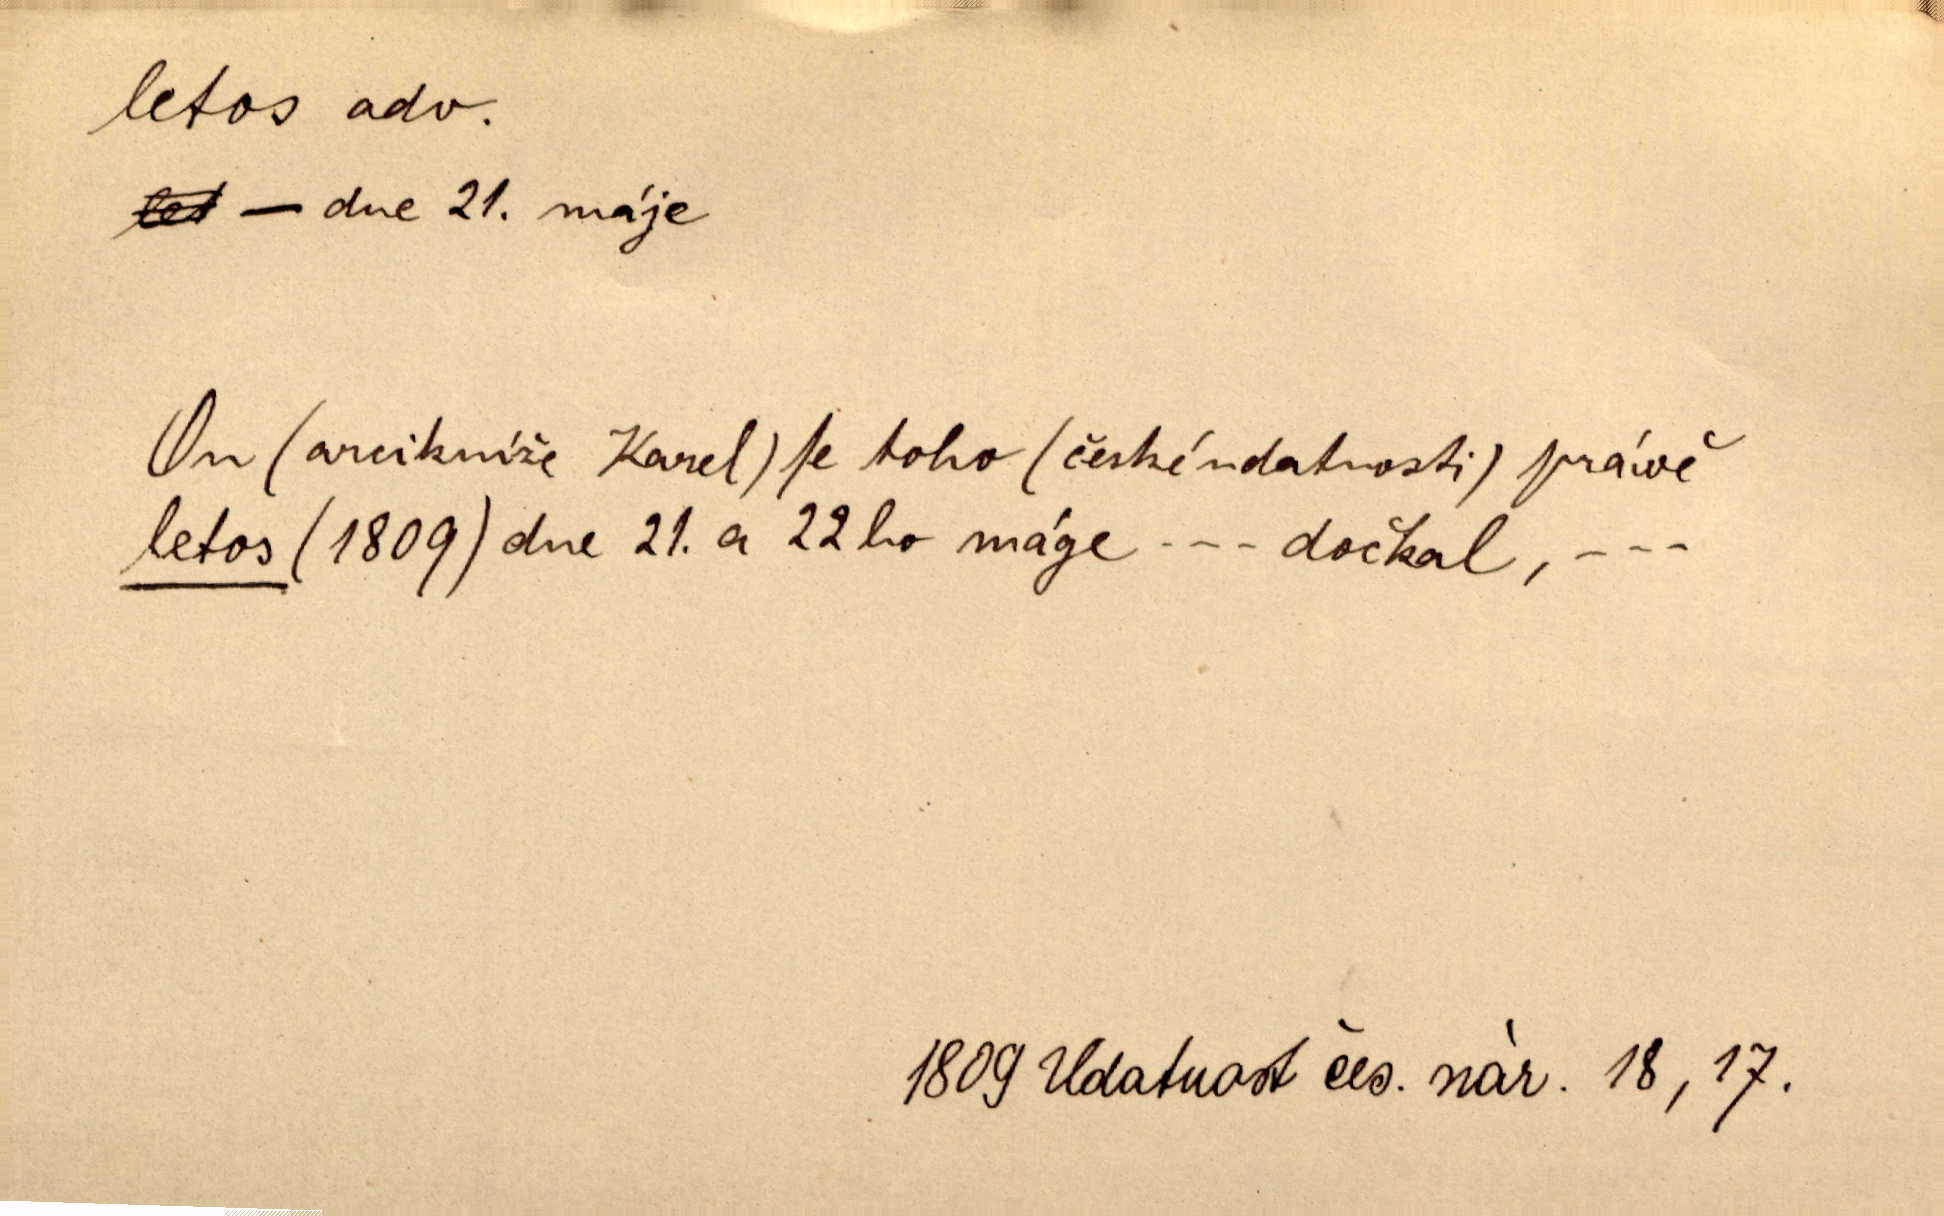 letos adv.
— dne 21. máje
On (arcikníže Karel) se toho (české udatnosti) práwě
letos (1809) dne 21. a 22ho máge --- dočkal, ---
1809 Udatnost čes. nàr. 18, 17.